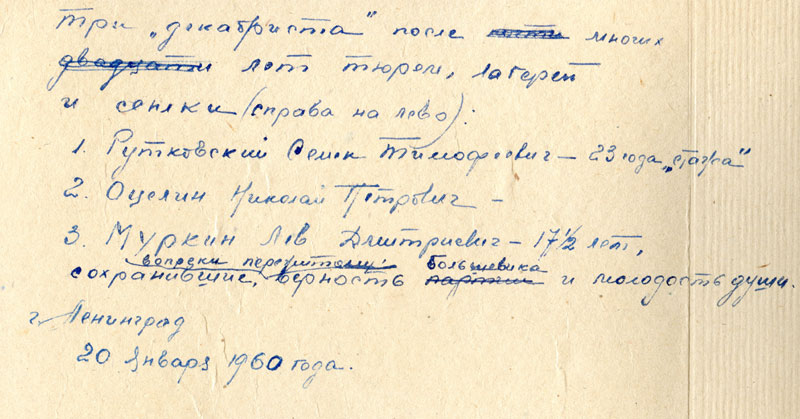 три „декабриста“ после почти многих
двадцати лет тюрем, лагерей
и ссылки (справа на лево):
1. Рутковский Семен Тимофеевич – 23 года „стажа“
2. Оцелин Николай Петрович –
3. Муркин Лев Дмитриевич – 17½ лет,
вопреки пережитому большевика
сохранившие, верность партии и молодость души.
г. Ленинград
20 января 1960 года.